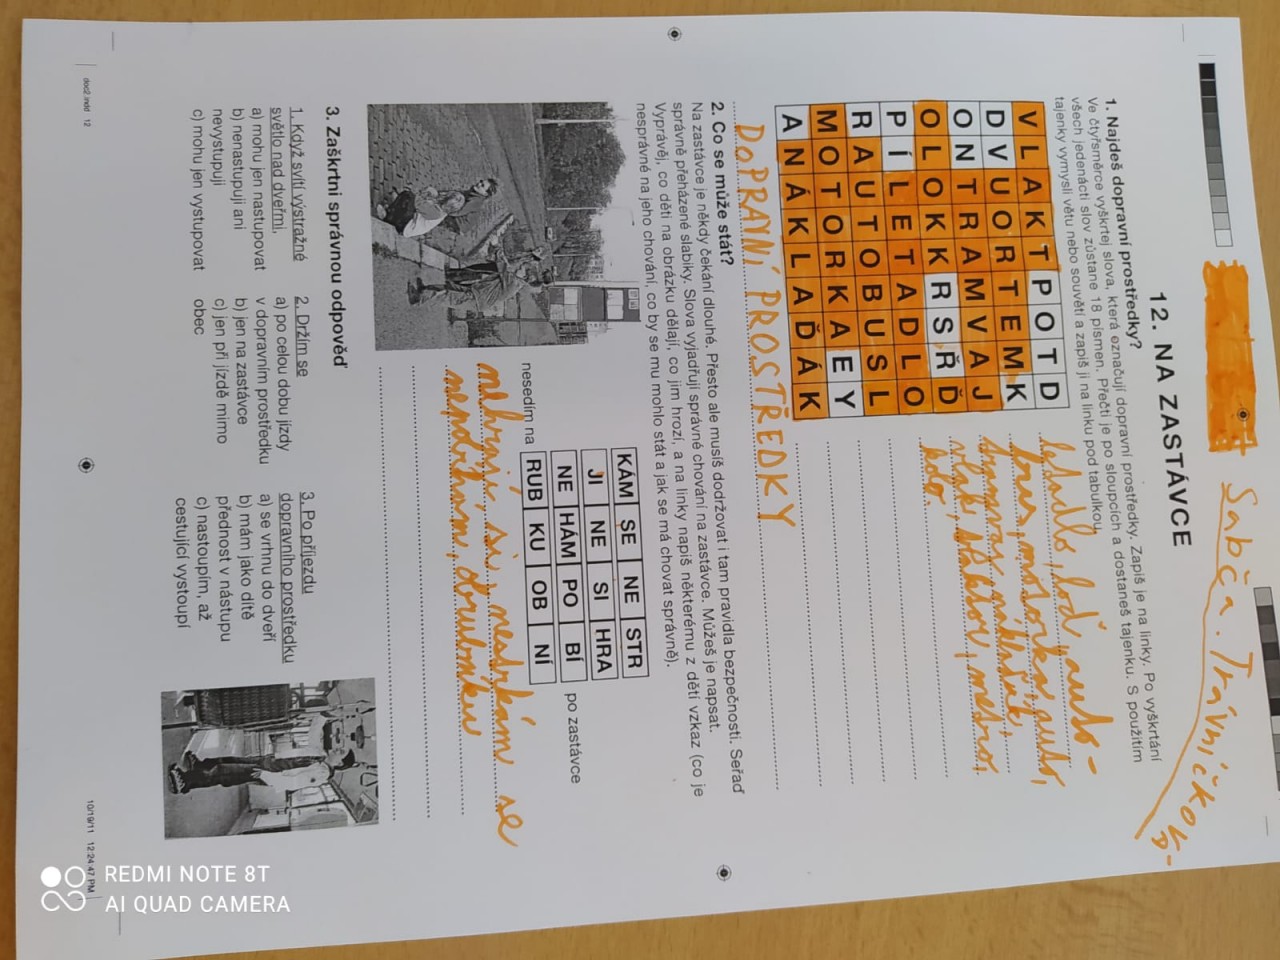 Sabča. Trávníčková-
12. NA ZASTÁVCE
1. Najdeš dopravní prostředky?
Ve čtyřsměrce vyškrtej slova, která označují dopravní prostředky. Zapiš je na linky. Po vyškrtání
všech jedenácti slov zůstane 18 písmen. Přečti je po sloupcích a dostaneš tajenku. S použitím
tajenky vymysli větu nebo souvětí a zapiš ji na linku pod tabulkou.
V L A K T P O T D
D V U O R T E M K
O N T R A M V A J
O L O K K R S Ř Ď
P Í L E T A D L O
R A U T O B U S L
M O T O R K A E Y
A N Á K L A Ď Á K
letadlo, loď, auto-
bus, motorka, auto,
tramvaj, náklaďák,
vlak, traktor, metro,
kolo.
DOPRAVNÍ PROSTŘEDKY
2. Co se může stát?
Na zastávce je někdy čekání dlouhé. Přesto ale musíš dodržovat i tam pravidla bezpečnosti. Seřaď
správně přeházené slabiky. Slova vyjadřují správné chování na zastávce. Můžeš je napsat.
Vyprávěj, co děti na obrázku dělají, co jim hrozí, a na linky napiš některému z dětí vzkaz (co je
nesprávné na jeho chování, co by se mu mohlo stát a jak se má chovat správně).
KÁM SE NE STR
JI NE SI HRA
NE HÁM PO BÍ po zastávce
nesedím na RUB KU OB NÍ
nehraji si, nestrkám se
nepobíhám, obrubníku
3. Zaškrtni správnou odpověď
1. Když svítí výstražné
světlo nad dveřmi,
a) mohu jen nastupovat
b) nenastupuji ani
nevystupuji
c) mohu jen vystupovat
2. Držím se
a) po celou dobu jízdy
v dopravním prostředku
b) jen na zastávce
c) jen při jízdě mimo
obec
3. Po příjezdu
dopravního prostředku
a) se vrhnu do dveří
b) mám jako dítě
přednost v nástupu
c) nastoupím, až
cestující vystoupí
doc2.indd 12
10/19/11 12:24:47 PM
REDMI NOTE 8T
AI QUAD CAMERA